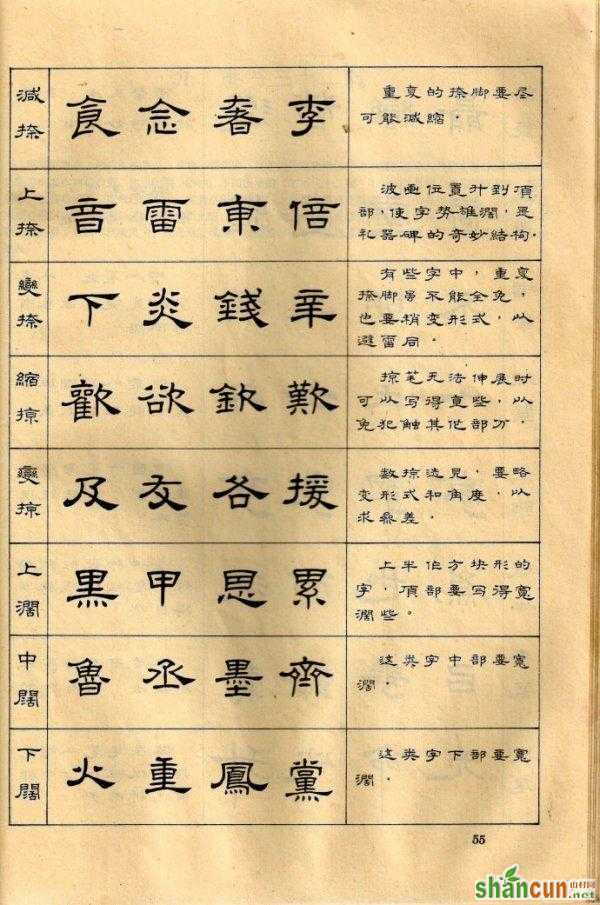 減捺
食念奢李
重复的捺脚要尽
可能減縮.
上捺
音雷東倍
波画位置升到頂
部,使字势雄濶,是
礼器碑的奇妙結构.
變捺
下炎錢幸
有些字中,重复
捺脚虽不能全免,
也要稍变形式,以
避雷同.
縮掠
歡欲欽歎
掠笔无法伸展时
可以写得直些,以
免犯触其他部分.
變掠
及友各援
数掠迭见,要略
变形式和角度,以
求参差.
上濶
黑甲恩累
上半作方块形的
字,頂部要写得寬
濶些.
中闊
魯丞墨齊
这类字中部要寬
濶.
下闊
火重鳳黨
这类字下部要寬
濶.
55
shancun
山村网
.net